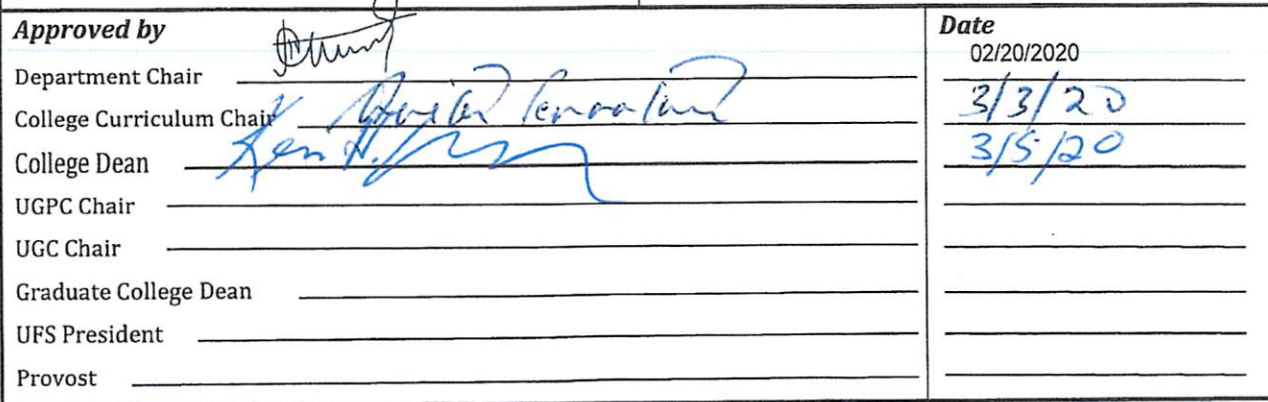 Approved by Date
02/20/2020
Department Chair
College Curriculum Chair 3/3/20
College Dean Ken H. 3/5/20
UGPC Chair
UGC Chair
Graduate College Dean
UFS President
Provost